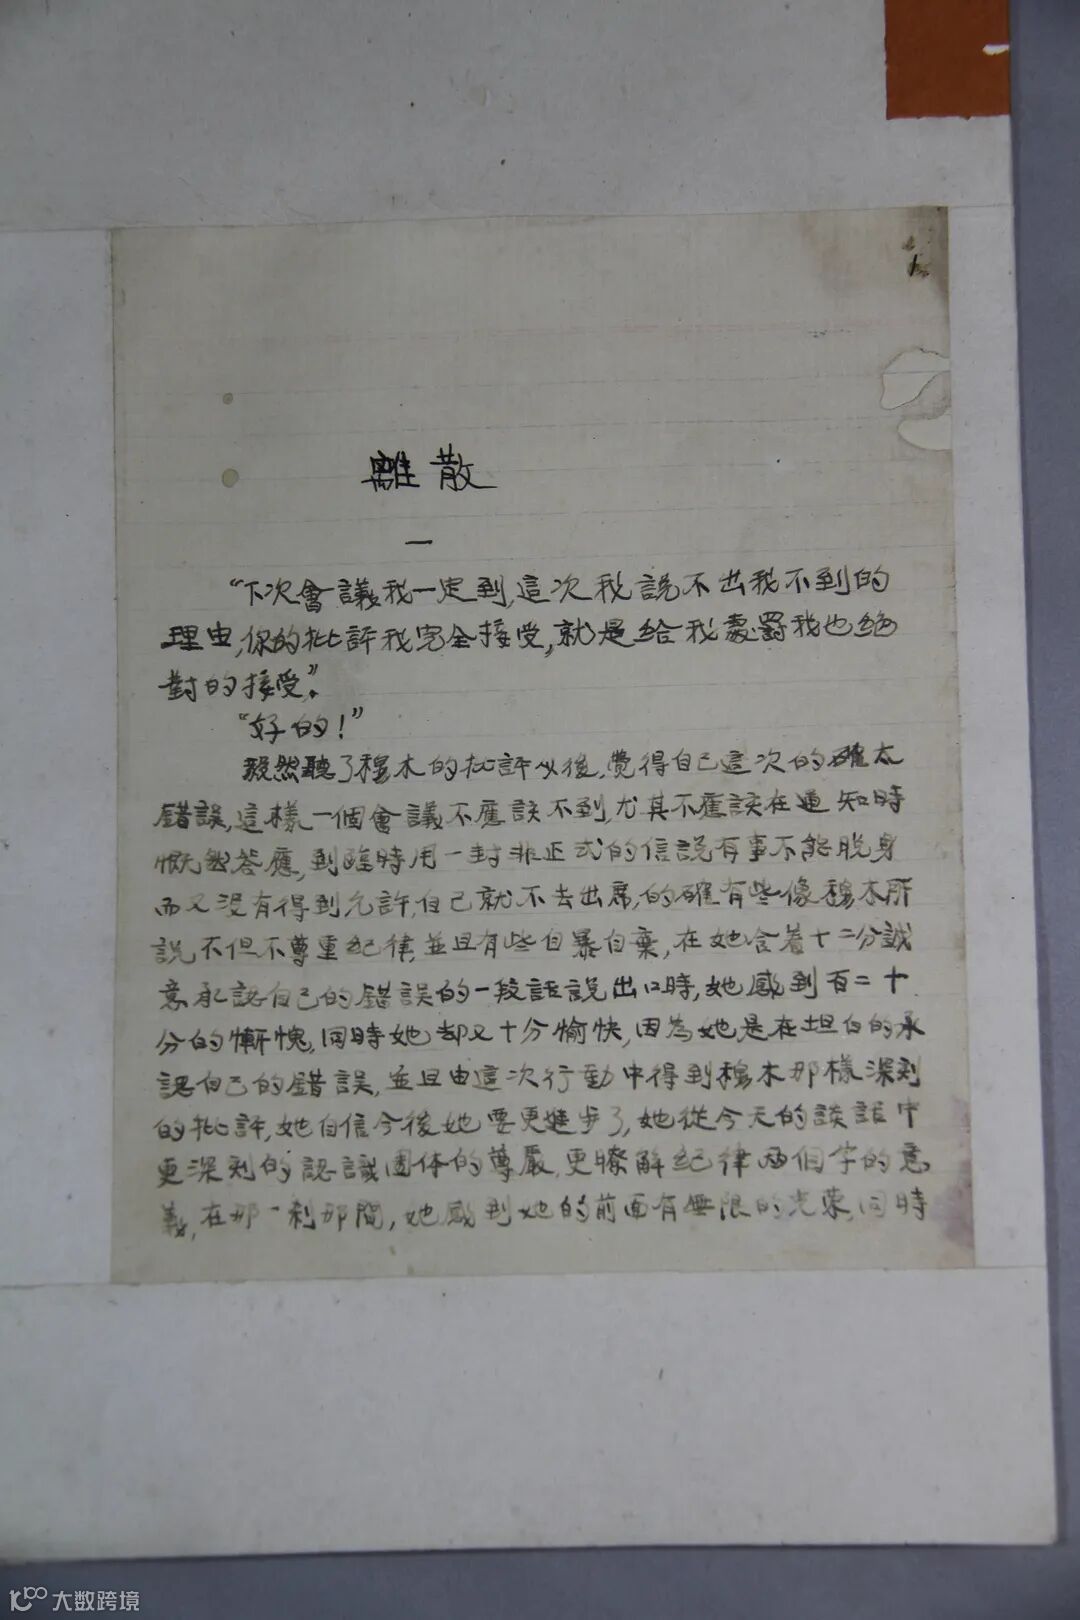 離散
一
“下次會議我一定到,這次我說不出我不到的
理由,你的批評我完全接受,就是給我處罰我也絕
對的接受”.
“好的!”
毅然聽了穆木的批評以後,覺得自己這次的確太
錯誤,這樣一個會議不應該不到,尤其不應該在通知時
慨然答應,到臨時用一封非正式的信說有事不能脫身
而又没有得到允許,自己就不去出席,的確有些像穆木所
說不但不尊重紀律,並且有些自暴自棄,在她含着十二分誠
意承認自己的錯誤的一段話說出口時,她感到百二十
分的慚愧,同時她却又十分愉快,因為她是在坦白的承
認自己的錯誤,並且由這次行動中得到穆木那樣深刻
的批評,她自信今後她要更進步了,她從今天的談話中
更深刻的認識團体的尊嚴,更瞭解紀律兩個字的意
義,在那一刹那間,她感到她的前面有無限的光榮,同時
大数跨境